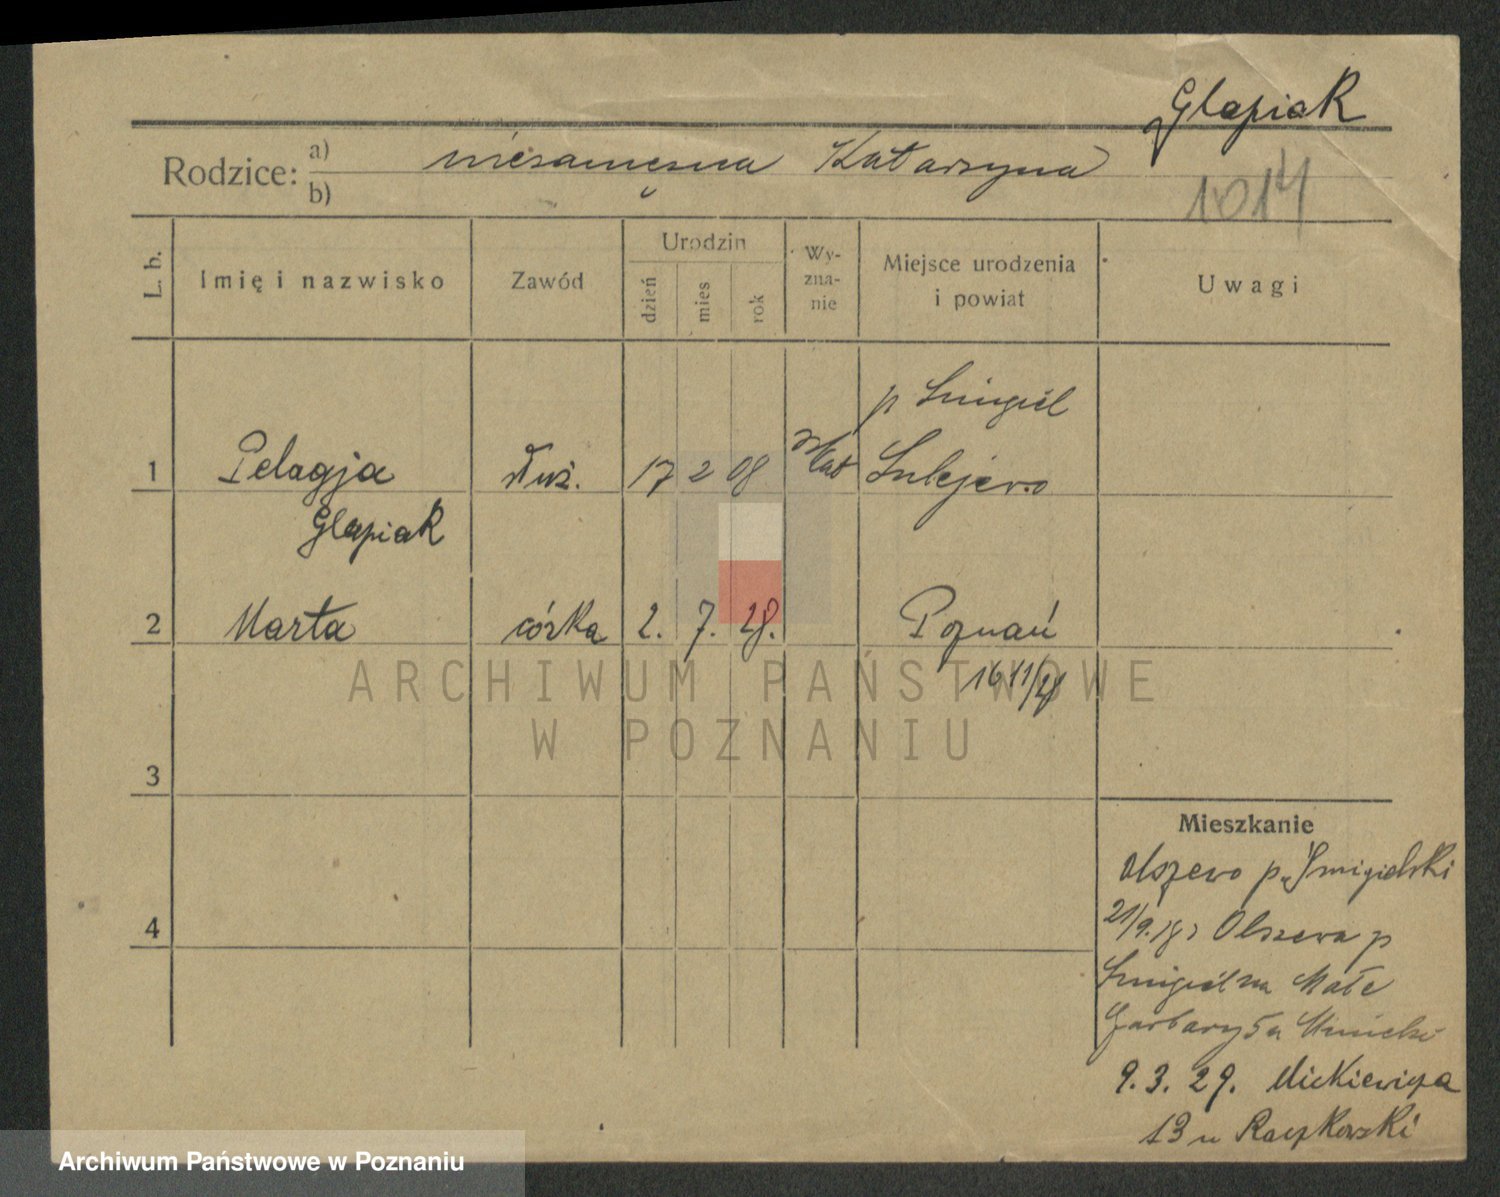 Glapiak
Rodzice: a) niezamężna Katarzyna
b)
1014
L. b.
Imię i nazwisko
Zawód
Urodzin
dzień
mies
rok
Wy-
zna-
nie
Miejsce urodzenia
i powiat
Uwagi
p Śmigiel
1 Pelagja służ. 17 2 08 Kat Sulejewo
Glapiak
2 Marta córka 2. 7. 28. Poznań
1611/28
3
4
ARCHIWUM PAŃSTWOWE
W POZNANIU
Mieszkanie
Olszewo p. Śmigielski
21/9. Olszewa p
Śmigiel na Małe
Garbary 5a
9. 3. 29. Mickiewicza
13 u Raczkowski
Archiwum Państwowe w Poznaniu